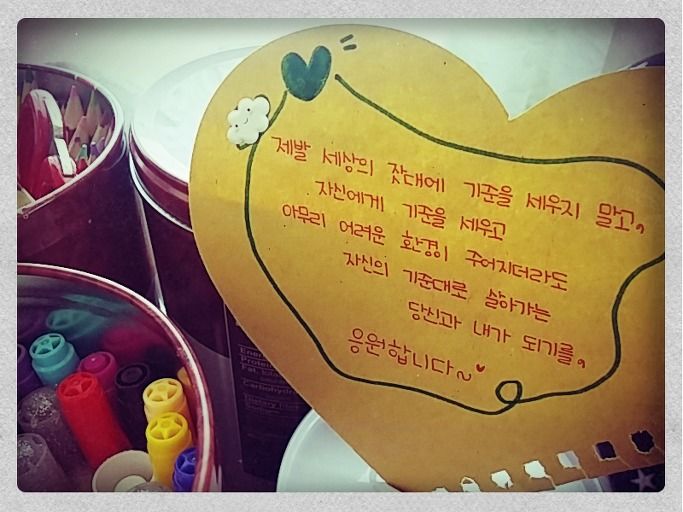 제발 세상의 잣대에 기준을 세우지 말고,
자신에게 기준을 세우고
아무리 어려운 환경이 주어지더라도
자신의 기준대로 살아가는
당신과 내가 되기를,
응원합니다~